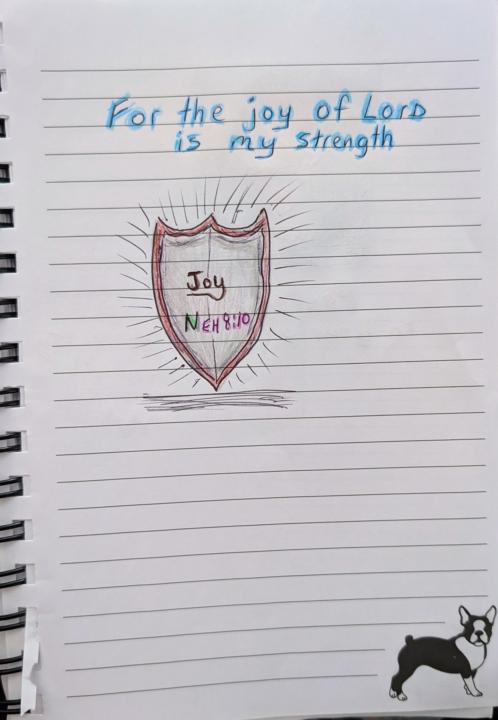 For the joy of Lord
is my strength
Joy
NEH 8:10